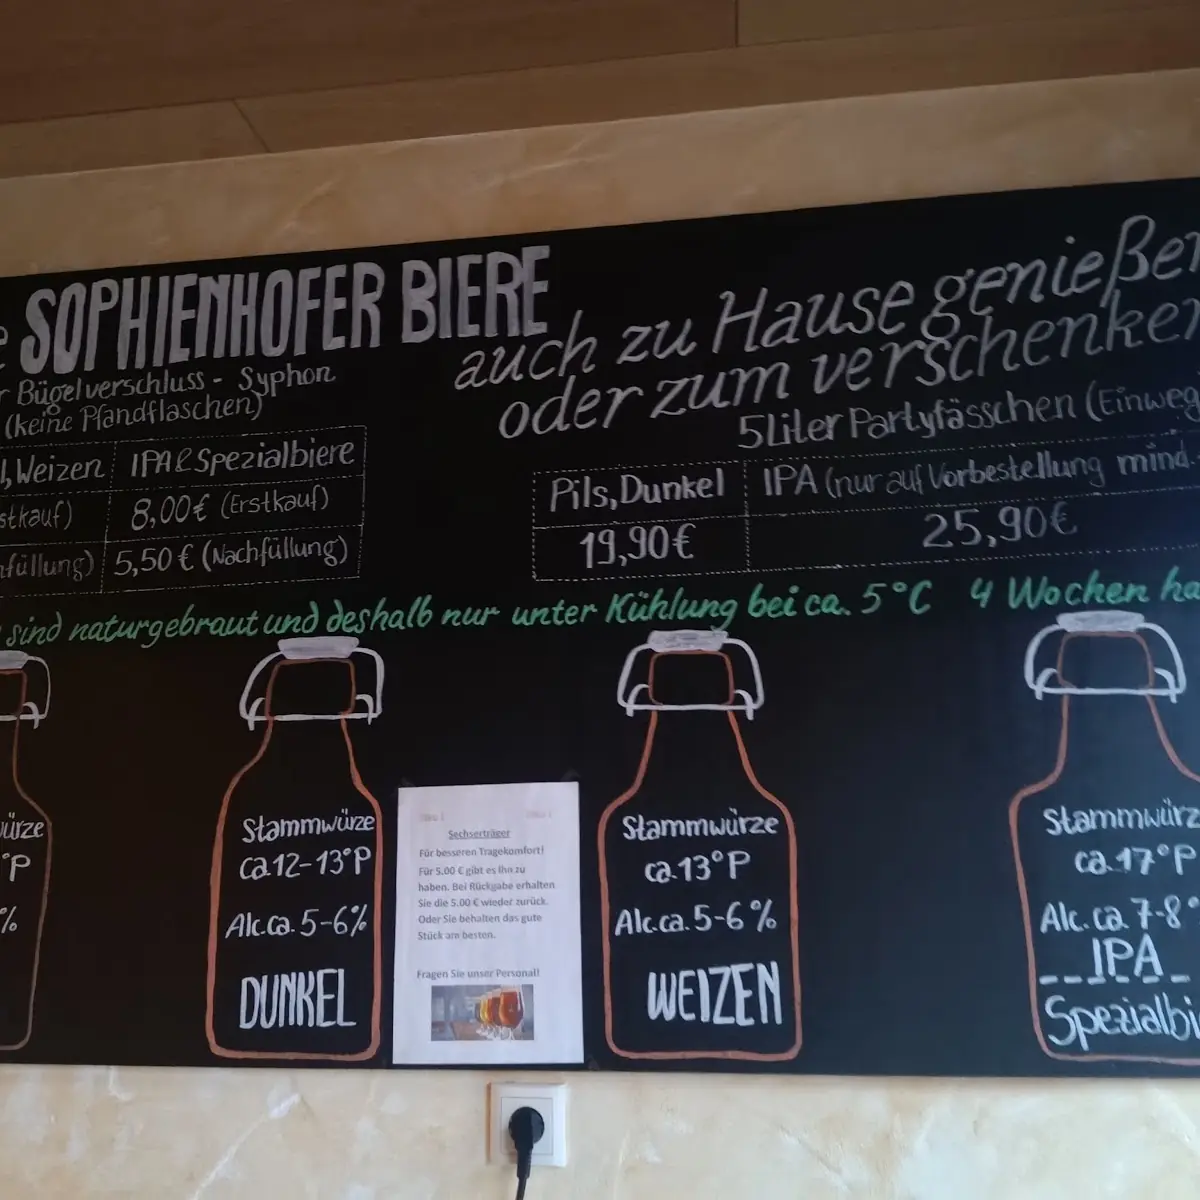 e SOPHIENHOFER BIERE
auch zu Hause genießen
oder zum verschenken
r Bügelverschluss - Syphon
(keine Pfandflaschen)
l, Weizen IPA & Spezialbiere
stkauf) 8,00€ (Erstkauf)
füllung) 5,50 € (Nachfüllung)
5Liter Partyfässchen (Einweg
Pils, Dunkel IPA (nur auf Vorbestellung mind.
19,90€ 25,90€
sind naturgebraut und deshalb nur unter Kühlung bei ca. 5°C 4 Wochen ha
ürze
°P
%
Stammwürze
ca 12-13°P
Alc. ca. 5-6%
DUNKEL
Sechserträger
Für besseren Tragekomfort!
Für 5.00 € gibt es ihn zu
haben. Bei Rückgabe erhalten
Sie die 5.00 € wieder zurück.
Oder Sie behalten das gute
Stück am besten.
Fragen Sie unser Personal!
Stammwürze
ca. 13°P
Alc. ca. 5-6%
WEIZEN
Stammwürz
ca. 17°P
Alc. ca. 7-8°
IPA
Spezialbi